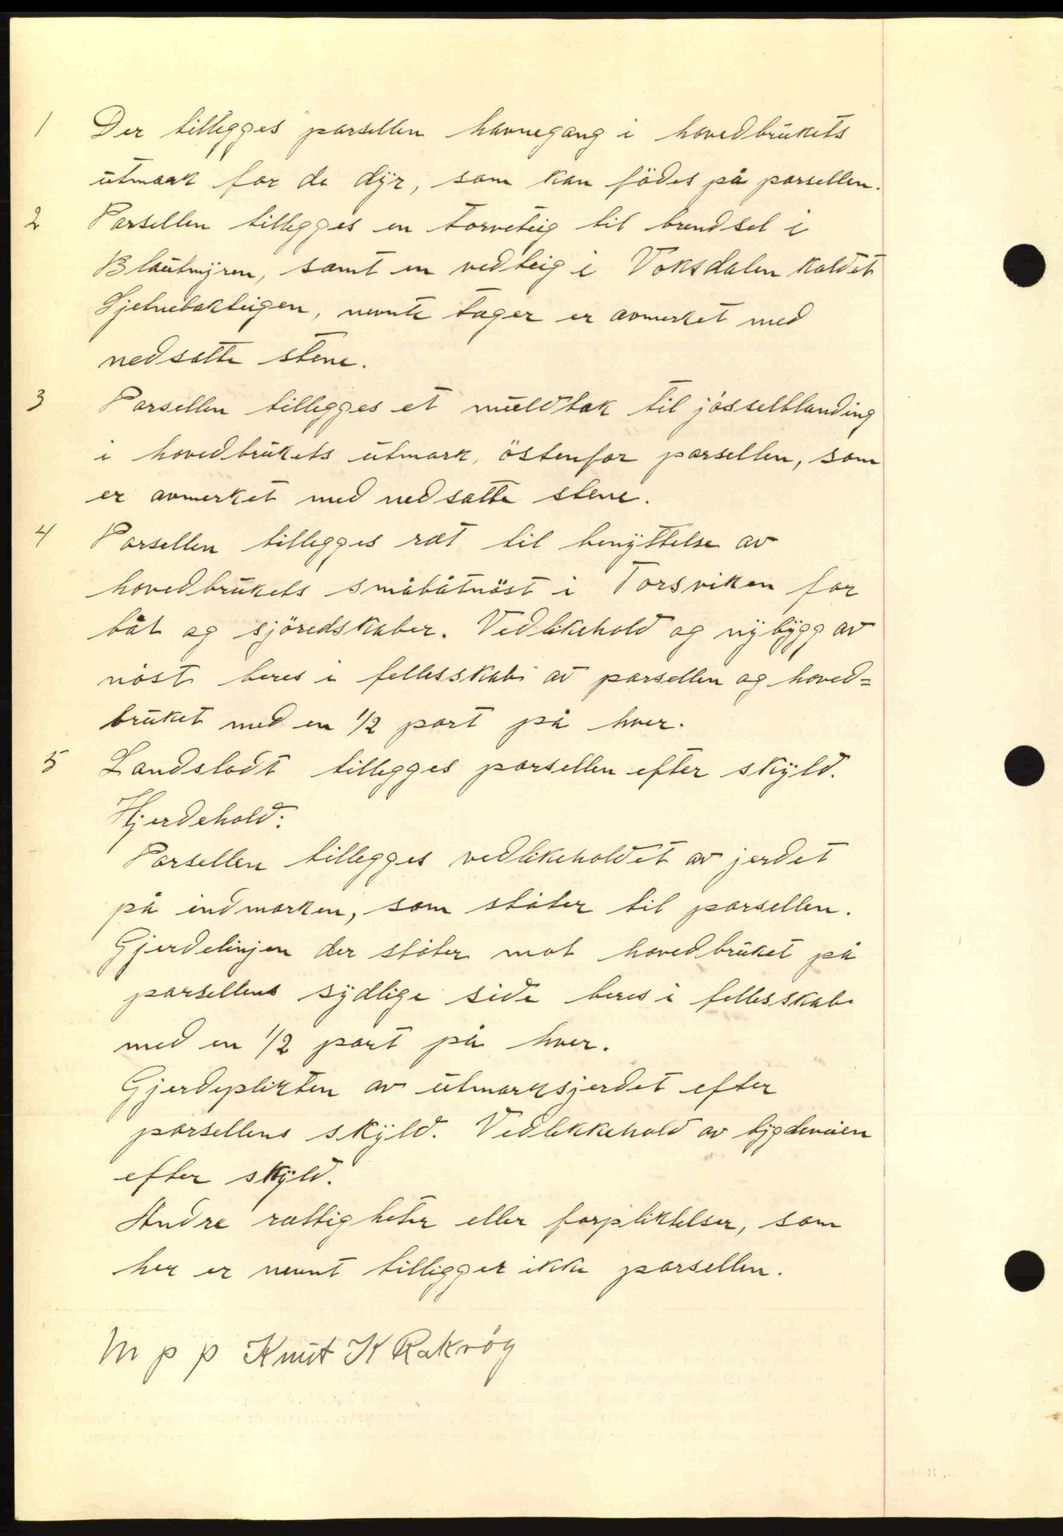 1 Der tillegges parsellen havnegang i hovedbrukets
utmark for de dyr, som kan födes på parsellen.
2 Parsellen tillegges en torveteig til brendsel i
Blautmyren, samt en vedteig i Voksdalen kaldet
Hjelnebakteigen, nevnte tager er avmerket med
nedsatte stene.
3 Parsellen tillegges et muldtak til jösselblanding
i hovedbrukets utmark, östenfor parsellen, som
er avmerket med nedsatte stene.
4 Parsellen tillegges ret til benyttelse av
hovedbrukets småbåtnöst i Torsviken for
båt og sjöredskaber. Vedlikehold og nybygg av
nöst beres i fellesskab av parsellen og hoved=
bruket med en 1/2 part på hver.
5 Landslodt tillegges parsellen efter skyld.
Hjerdehold:
Parsellen tillegges vedlikeholdet av jerdet
på indmarken, som stöter til parsellen.
Gjerdelinjen der stöter mot hovedbruket på
parsellens sydlige side beres i fellesskab
med en 1/2 part på hver.
Gjerdeplikten av utmarksjerdet efter
parsellens skyld. Vedlikkehold av bygdeveien
efter skyld.
Andre rettigheter eller forpliktelser, som
her er nevnt tilligger ikke parsellen.
M p p Knut K Rakvåg